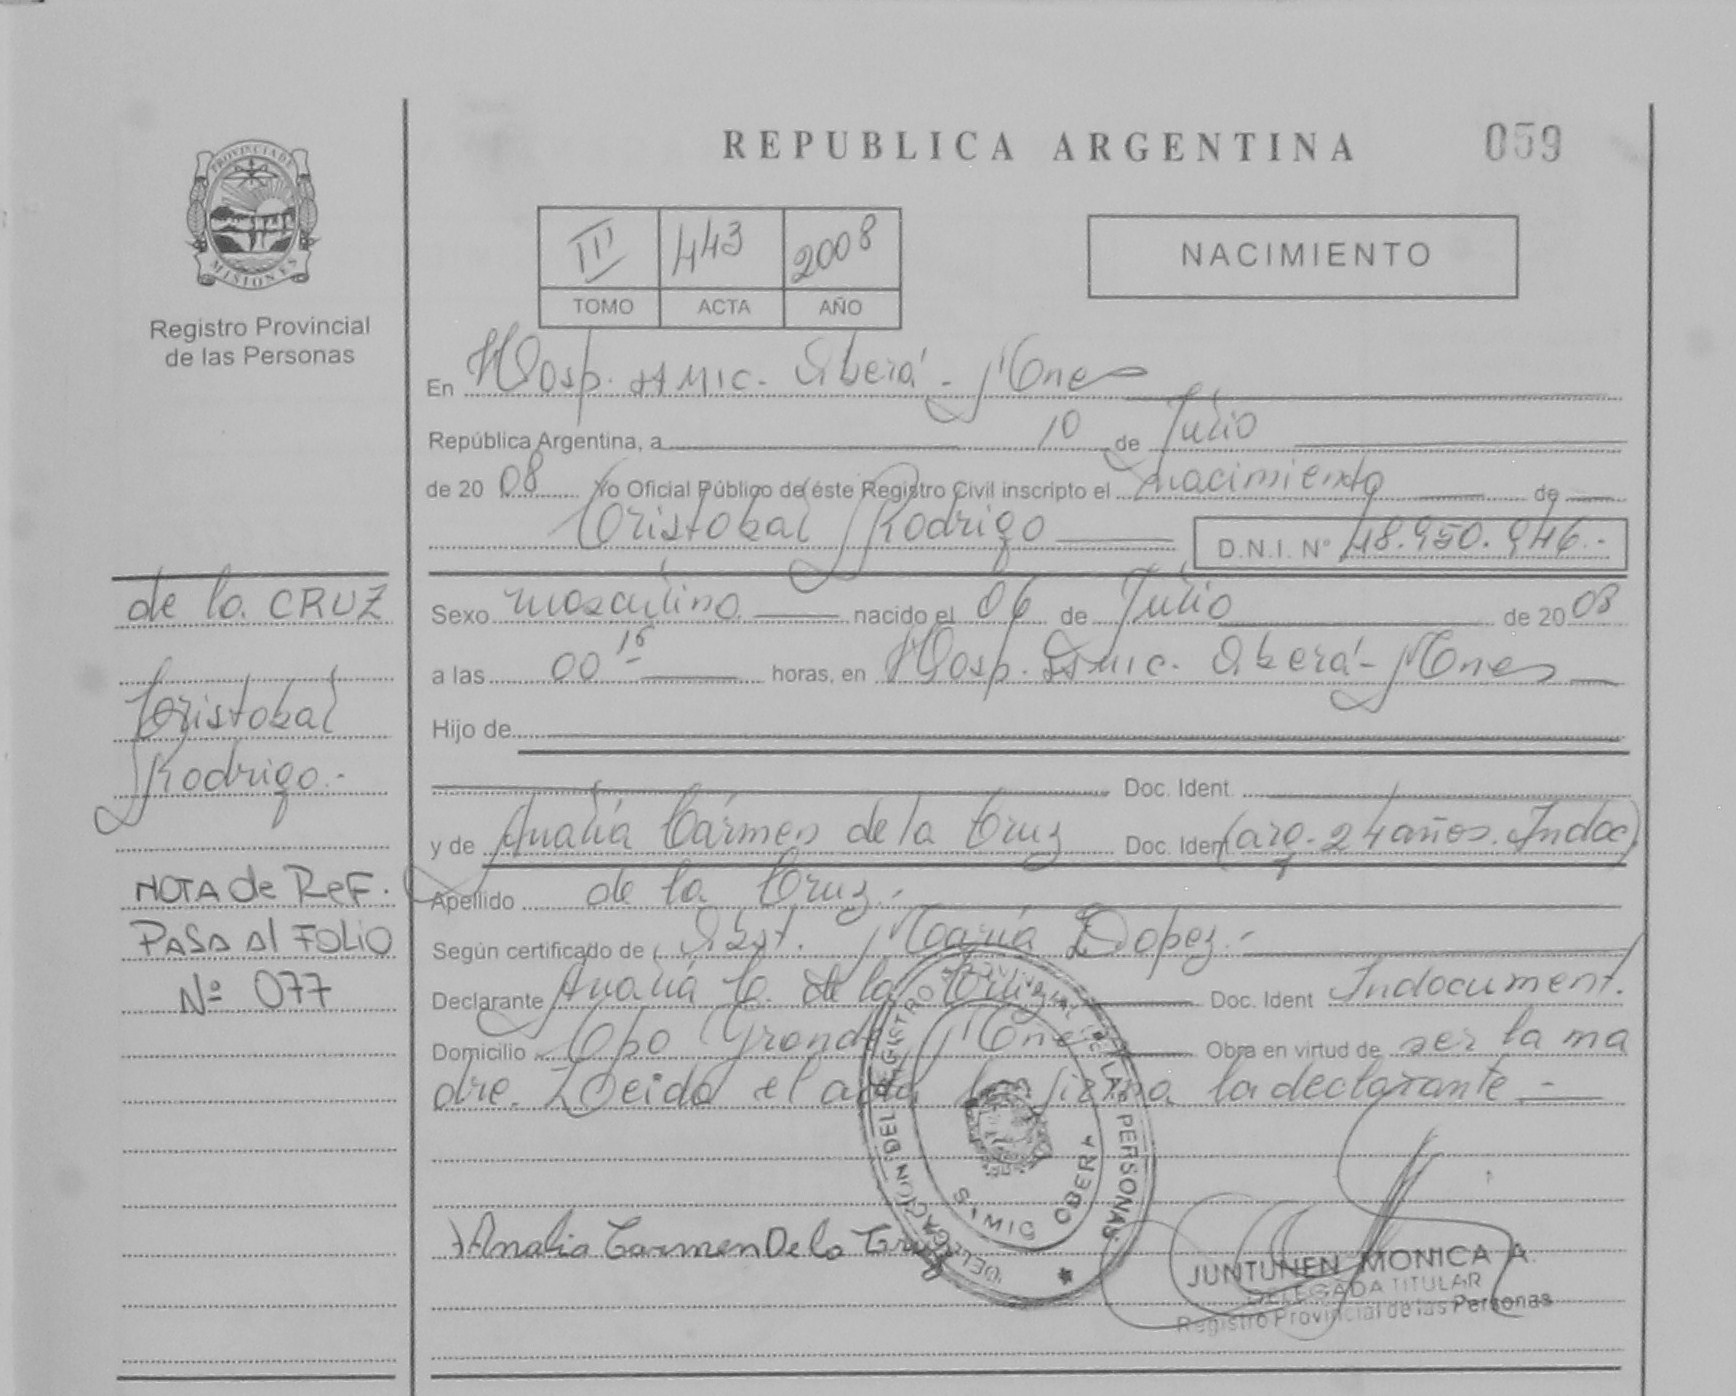 PROVINCIA DE
MISIONES
Registro Provincial
de las Personas
REPUBLICA ARGENTINA
059
III 443 2008
TOMO ACTA AÑO
NACIMIENTO
En Hosp. SAMIC. Oberá - Mnes
República Argentina, a 10 de Julio
de 20 08 Yo Oficial Público de éste Registro Civil inscripto el nacimiento de
Cristobal Rodrigo D.N.I. Nº 48.950.946.-
Sexo masculino nacido el 06 de Julio de 20 08
a las 00 15 horas, en Hosp. SAMIC. Oberá - Mnes
Hijo de
Doc. Ident.
y de Analia Cármen de la Cruz Doc. Ident (arg. 24 años. Indoc)
Apellido de la Cruz.-
Según certificado de Obst. María Lopez.-
Declarante Analia C. de la Cruz Doc. Ident Indocument.
Domicilio Cpo Grande Mnes Obra en virtud de ser la ma
dre. Leida el acta la firma la declarante -
de la CRUZ
Cristobal
Rodrigo.-
NOTA de REF.
PASA Al FOLIO
Nº 077
Analia Carmen De la Cruz
DELEGACION DEL REGISTRO PROVINCIAL DE LAS PERSONAS
SAMIC OBERA
JUNTUNEN MONICA A.
DELEGADA TITULAR
Registro Provincial de las Personas